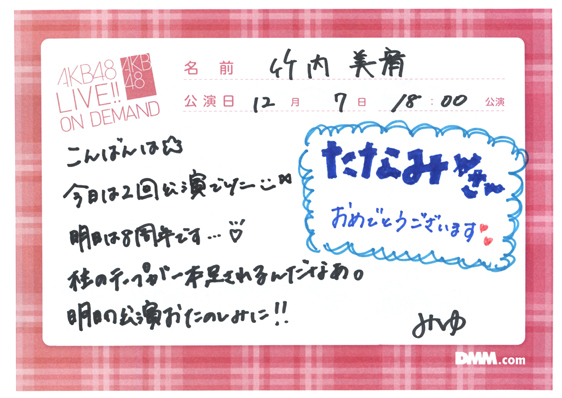 AKB48
LIVE!!
ON DEMAND
AKB
48
名前 竹内美宥
公演日 12月7日 18:00 公演
こんばんは☆
今日は2回公演でぃー
明日は8周年です…♡
柱のテープが一本足されるんだなあ。
明日の公演おたのしみに!!
たなみん
おめでとうございます
みゆ
DMM.com